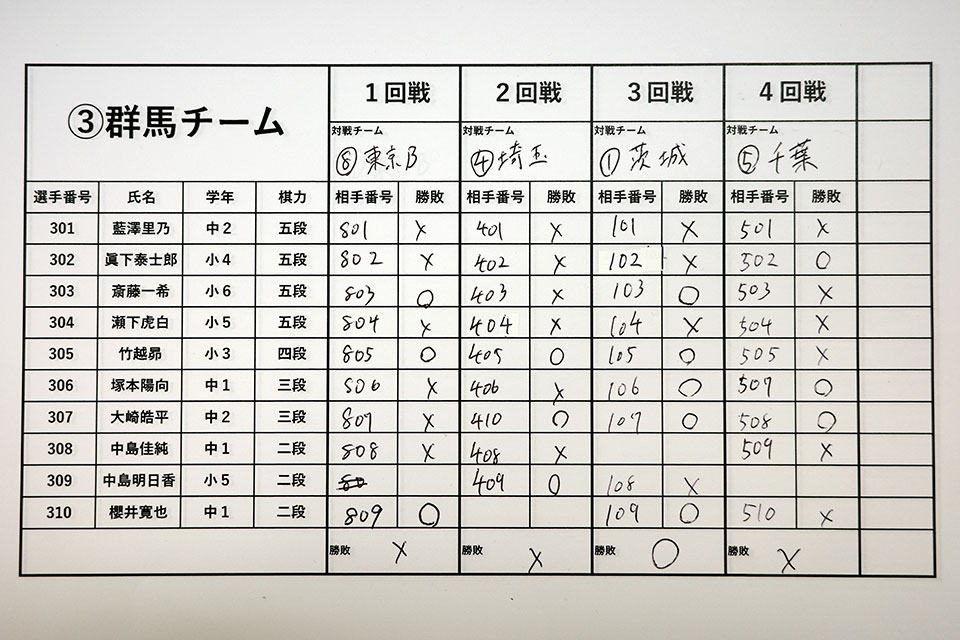 ③群馬チーム 1回戦 2回戦 3回戦 4回戦
対戦チーム 対戦チーム 対戦チーム 対戦チーム
⑧東京B ④埼玉 ①茨城 ⑤千葉
選手番号 氏名 学年 棋力 相手番号 勝敗 相手番号 勝敗 相手番号 勝敗 相手番号 勝敗
301 藍澤里乃 中2 五段 801 × 401 × 101 × 501 ×
302 眞下泰士郎 小4 五段 802 × 402 × 102 × 502 ○
303 斎藤一希 小6 五段 803 ○ 403 × 103 ○ 503 ×
304 瀬下虎白 小5 五段 804 × 404 × 104 × 504 ×
305 竹越昴 小3 四段 805 ○ 405 ○ 105 ○ 505 ×
306 塚本陽向 中1 三段 806 × 406 × 106 ○ 507 ○
307 大崎皓平 中2 三段 807 × 410 ○ 107 ○ 508 ○
308 中島佳純 中1 二段 808 × 408 × 509 ×
309 中島明日香 小5 二段 409 ○ 108 ×
310 櫻井寛也 中1 二段 809 ○ 109 ○ 510 ×
勝敗 × 勝敗 × 勝敗 ○ 勝敗 ×